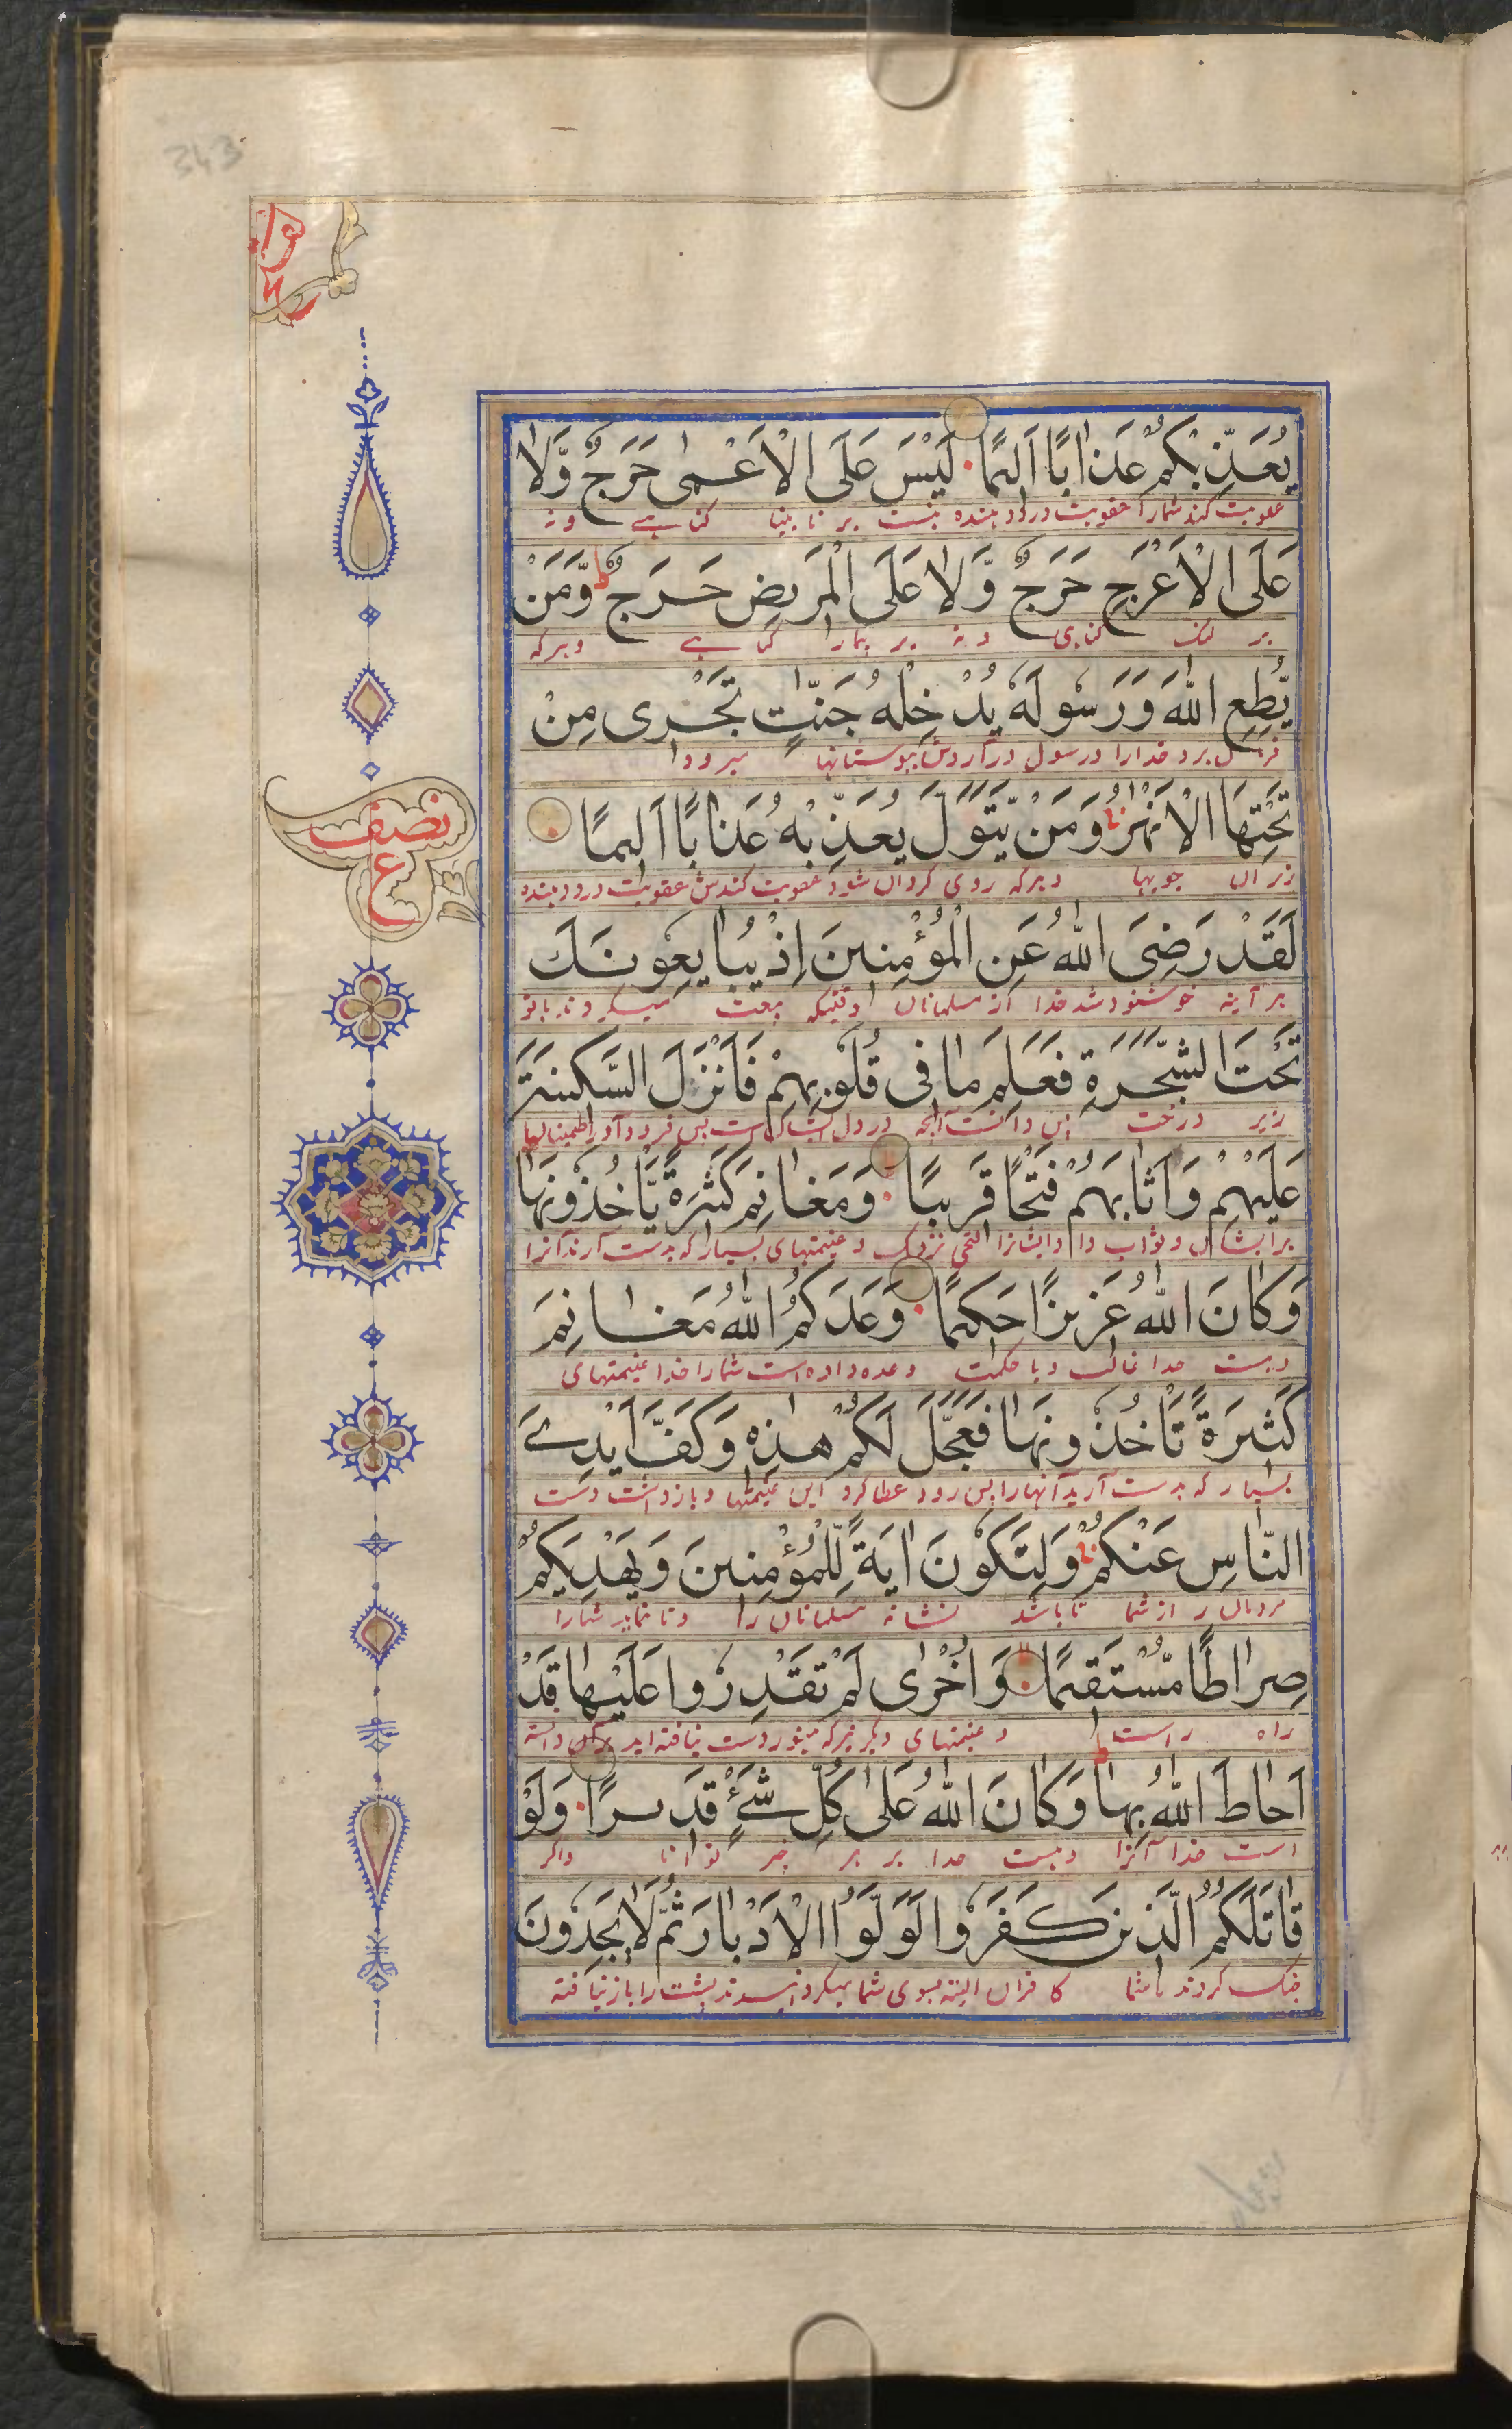 343
يُعَذِّبْكُمْ عَذَابًا اَلِيمًا لَيْسَ عَلَى الْاَعْمٰى حَرَجٌ وَّلَا
عقوبت کند شمارا عقوبت درد دهنده نیست بر نابینا گناهے و نه
عَلَى الْاَعْرَجِ حَرَجٌ وَّلَا عَلَى الْمَرِيضِ حَرَجٌ ط وَّمَنْ
بر لنگ گناهی و نه بر بیمار گناهے و هر که
يُّطِعِ اللّٰهَ وَرَسُولَهٗ يُدْخِلْهُ جَنّٰتٍ تَجْرِى مِنْ
فرمان برد خدارا و رسول درآردش ببوستانها میرود
تَحْتِهَا الْاَنْهٰرُ وَمَنْ يَّتَوَلَّ يُعَذِّبْهُ عَذَابًا اَلِيمًا
زیر آن جویها و هر که روی گردان شود عقوبت کندش عقوبت درد دهنده
نصف
ع
لَقَدْ رَضِىَ اللّٰهُ عَنِ الْمُؤْمِنِينَ اِذْ يُبَايِعُونَكَ
هر آینه خوشنود شد خدا از مسلمانان وقتیکه بیعت میکردند با تو
تَحْتَ الشَّجَرَةِ فَعَلِمَ مَا فِى قُلُوبِهِمْ فَاَنْزَلَ السَّكِينَةَ
زیر درخت پس دانست آنچه در دل ایشان است پس فرود آورد اطمینان
عَلَيْهِمْ وَاَثَابَهُمْ فَتْحًا قَرِيبًا وَمَغَانِمَ كَثِيرَةً يَّاْخُذُونَهَا
بر ایشان و ثواب داد ایشانرا فتحی نزدیک و غنیمتهای بسیار که بدست آرند آنرا
وَكَانَ اللّٰهُ عَزِيزًا حَكِيمًا وَعَدَكُمُ اللّٰهُ مَغَانِمَ
و هست خدا غالب و با حکمت وعده داده است شمارا خدا غنیمتهای
كَثِيرَةً تَاْخُذُونَهَا فَعَجَّلَ لَكُمْ هٰذِهٖ وَكَفَّ اَيْدِىَ
بسیار که بدست آرید آنهارا پس زود عطا کرد این غنیمتها و بازداشت دست
النَّاسِ عَنْكُمْ وَلِتَكُونَ اٰيَةً لِّلْمُؤْمِنِينَ وَيَهْدِيَكُمْ
مردمان از شما تا باشد نشانه مسلمانان را و تا نماید شمارا
صِرَاطًا مُّسْتَقِيمًا وَاُخْرٰى لَمْ تَقْدِرُوا عَلَيْهَا قَدْ
راه راست و غنیمتهای دیگر نیز که هنوز دست نیافته اید بر آن دانسته
اَحَاطَ اللّٰهُ بِهَا ط وَكَانَ اللّٰهُ عَلٰى كُلِّ شَىْءٍ قَدِيرًا وَلَوْ
است خدا آنرا و هست خدا بر هر چیز توانا و اگر
قَاتَلَكُمُ الَّذِينَ كَفَرُوا لَوَلَّوُا الْاَدْبَارَ ثُمَّ لَا يَجِدُونَ
جنگ کردند با شما کافران البته بسوی شما میگردانیدند پشت را باز نیافته